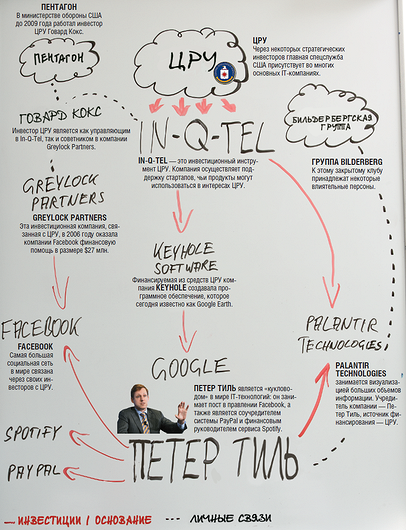 ПЕНТАГОН
В министерстве обороны США
до 2009 года работал инвестор
ЦРУ Говард Кокс.
ПЕНТАГОН
ЦРУ
ЦРУ
Через некоторых стратегических
инвесторов главная спецслужба
США присутствует во многих
основных IT-компаниях.
ГОВАРД КОКС
Инвестор ЦРУ является как управляющим
в In-Q-Tel, так и советником в компании
Greylock Partners.
IN-Q-TEL
IN-Q-TEL — это инвестиционный инстру-
мент ЦРУ. Компания осуществляет под-
держку стартапов, чьи продукты могут
использоваться в интересах ЦРУ.
БИЛЬДЕРБЕРГСКАЯ
ГРУППА
ГРУППА BILDERBERG
К этому закрытому клубу
принадлежат некоторые
влиятельные персоны.
GREYLOCK
PARTNERS
GREYLOCK PARTNERS
Эта инвестиционная компания, свя-
занная с ЦРУ, в 2006 году оказала
компании Facebook финансовую
помощь в размере $27 млн.
KEYHOLE
SOFTWARE
Финансируемая из средств ЦРУ ком-
пания KEYHOLE создавала про-
граммное обеспечение, которое
сегодня известно как Google Earth.
FACEBOOK
FACEBOOK
Самая большая
социальная сеть
в мире связана
через своих ин-
весторов с ЦРУ.
GOOGLE
PALANTIR
TECHNOLOGIES
PALANTIR
TECHNOLOGIES
занимается визуализа-
цией больших объемов
информации. Учреди-
тель компании — Пе-
тер Тиль, источник фи-
нансирования — ЦРУ.
ПЕТЕР ТИЛЬ является «куклово-
дом» в мире IT-технологий: он за-
нимает пост в правлении Facebook, а
также является соучредителем
системы PayPal и финансовым
руководителем сервиса Spotify.
SPOTIFY
PAYPAL
ПЕТЕР ТИЛЬ
ИНВЕСТИЦИИ / ОСНОВАНИЕ
ЛИЧНЫЕ СВЯЗИ